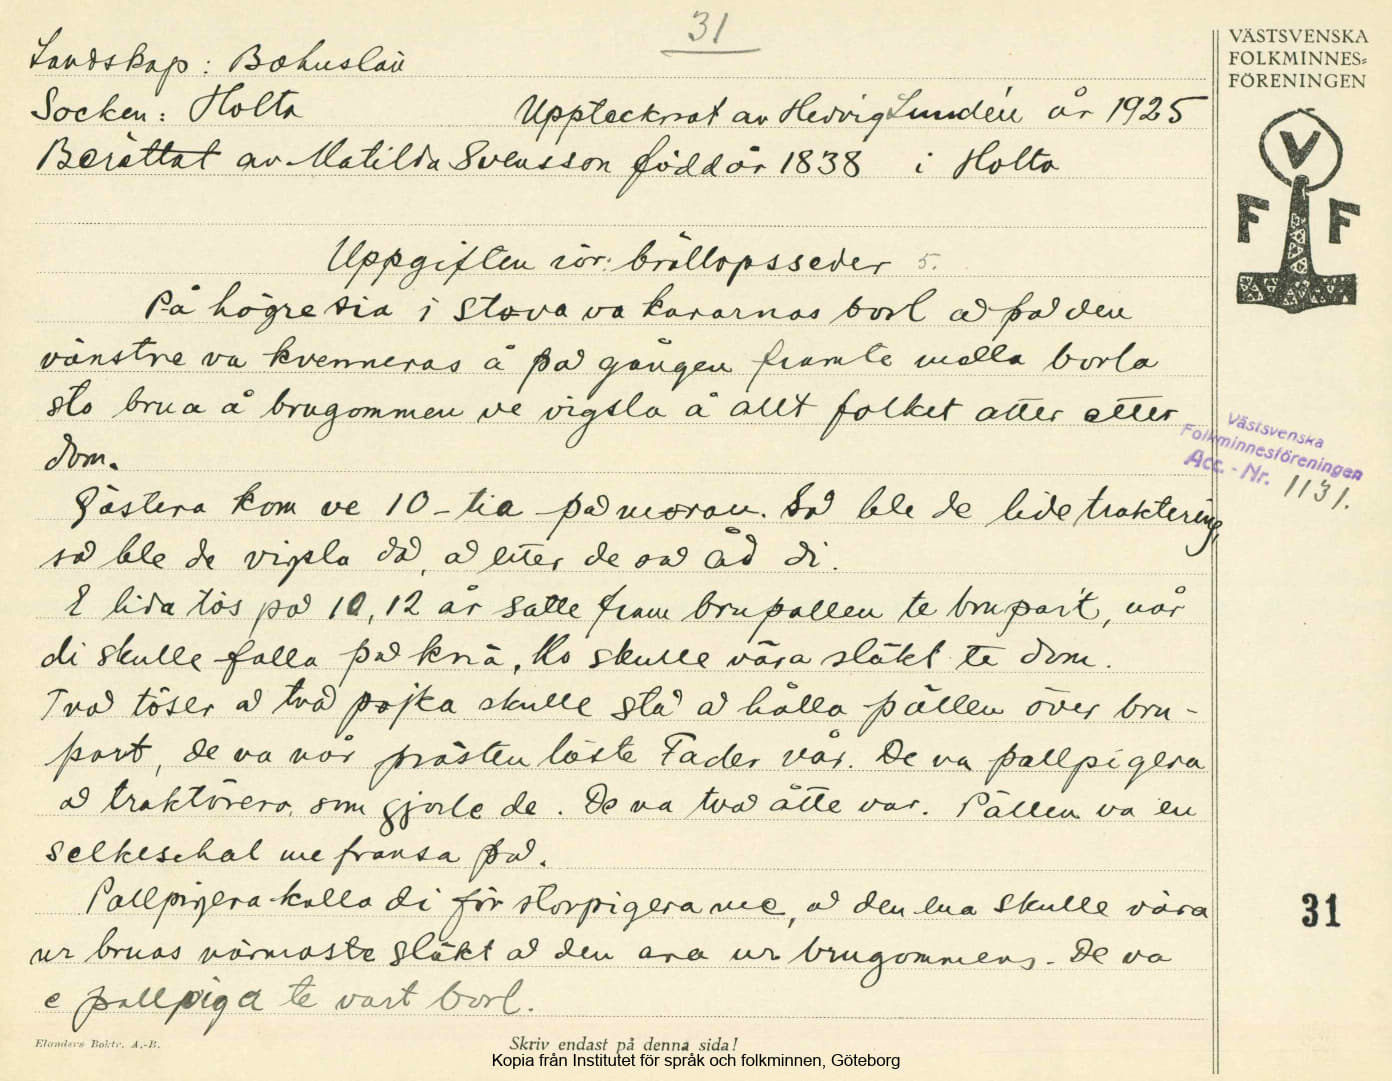 31
VÄSTSVENSKA
FOLKMINNES-
FÖRENINGEN
V
F F
Landskap: Bohuslän
Socken: Holta Upptecknat av Hedvig Lundén år 1925
Berättat av Matilda Svensson född år 1838 i Holta
Uppgiften rör: bröllopsseder 5.
På högre sia i stova va kararnas borl å på den
vänstre va kvenneras å på gången framte mella borla
sto brua å brugommen ve vigsla å allt folket atter etter
dom.
Gästera kom ve 10-tia på moran. Så ble de lide traktering,
så ble de vigsla då, å etter de så åd di.
E lida tös på 10, 12 år satte fram brupallen te brupart, når
di skulle falla på knä. Ho skulle vära släkt te dom.
Två töser å två pojka skulle stå å hålla pällen över bru-
part, de va når prästen läste Fader vår. De va pallpigera
å traktörera som gjorde de. De va två åtte var. Pällen va en
selkeschal me fransa på.
Pallpigera kalla di för storpigera me, å den ena skulle vära
ur bruas närmaste släkt å den ara ur brugommens. De va
e pallpiga te vart borl.
Västsvenska
Folkminnesföreningen
Acc. - Nr. 1131.
31
Elanders Boktr. A.-B.
Skriv endast på denna sida!
Kopia från Institutet för språk och folkminnen, Göteborg